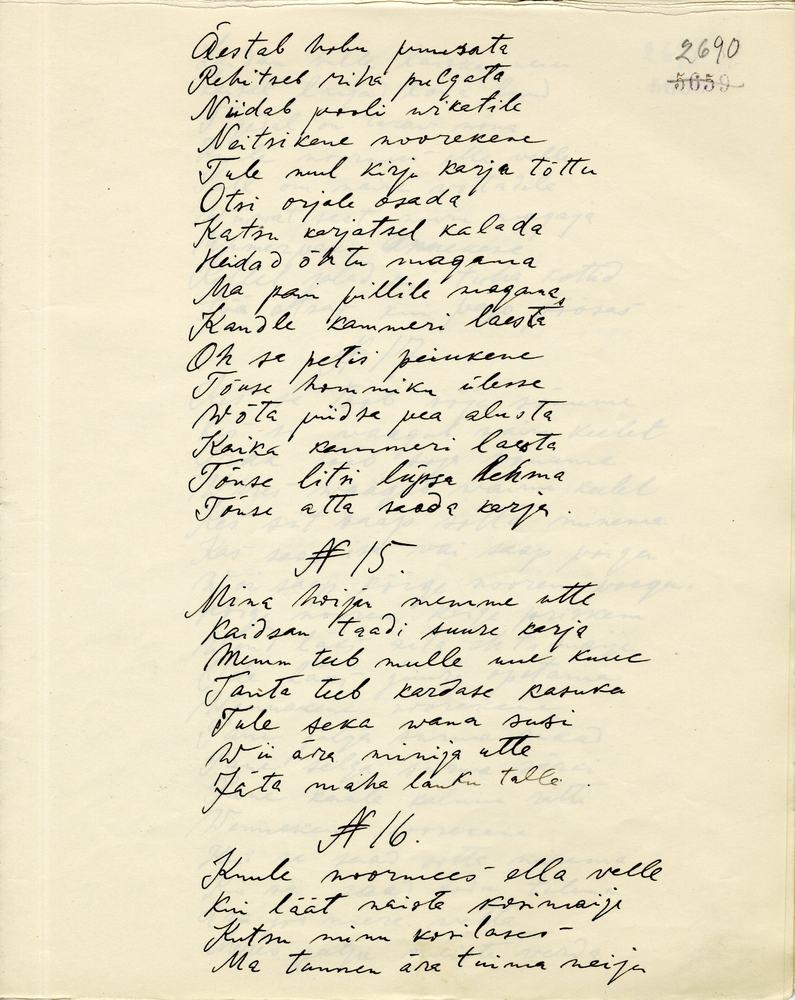 2690
5659
Äestab hobu puusata
Rehitseb riha pulgata
Niidab pooli wikatile
Neitsikene noorekene
Tule mul kirju karja tõttu
Otsi orjale osada
Katsu karjatsel kalada
Heidad õhtu magama
Ma pain pillile magama,
Kandle kammeri laesta
Oh sa petis peiukene
Tõuse hommiku ülesse
Wõta püdsa pea alusta
Kaika kammeri laesta
Tõuse litsi lüpsa lehma
Tõuse atta saada karja.
№ 15.
Mina hoijan memme utte
Kaidsan taadi suure karja
Memm teeb mulle uue kuue
Tanta teeb kardase kasuka
Tule seka wana susi
Wii ära minija utte
Jäta maha lauku talle.
№ 16.
Kuule noormees ella velle
Kui läät naista kosimaije
Kutsu minu kosilases
Ma tunnen ära tuima neiju